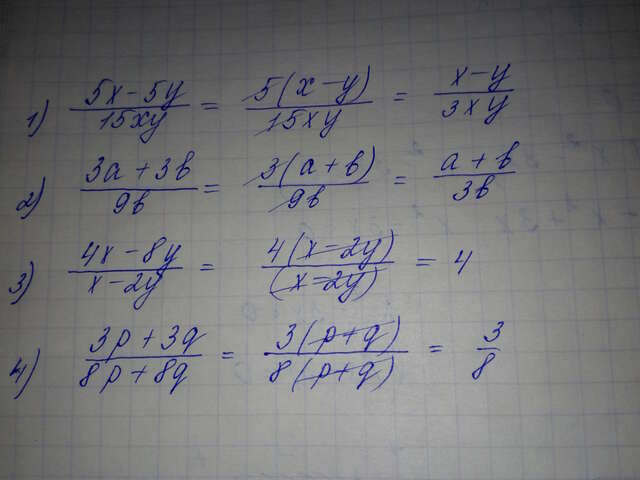 1) (5x-5y)/(15xy) = (5(x-y))/(15xy) = (x-y)/(3xy)
2) (3a+3b)/(9b) = (3(a+b))/(9b) = (a+b)/(3b)
3) (4x-8y)/(x-2y) = (4(x-2y))/((x-2y)) = 4
4) (3p+3q)/(8p+8q) = (3(p+q))/(8(p+q)) = 3/8